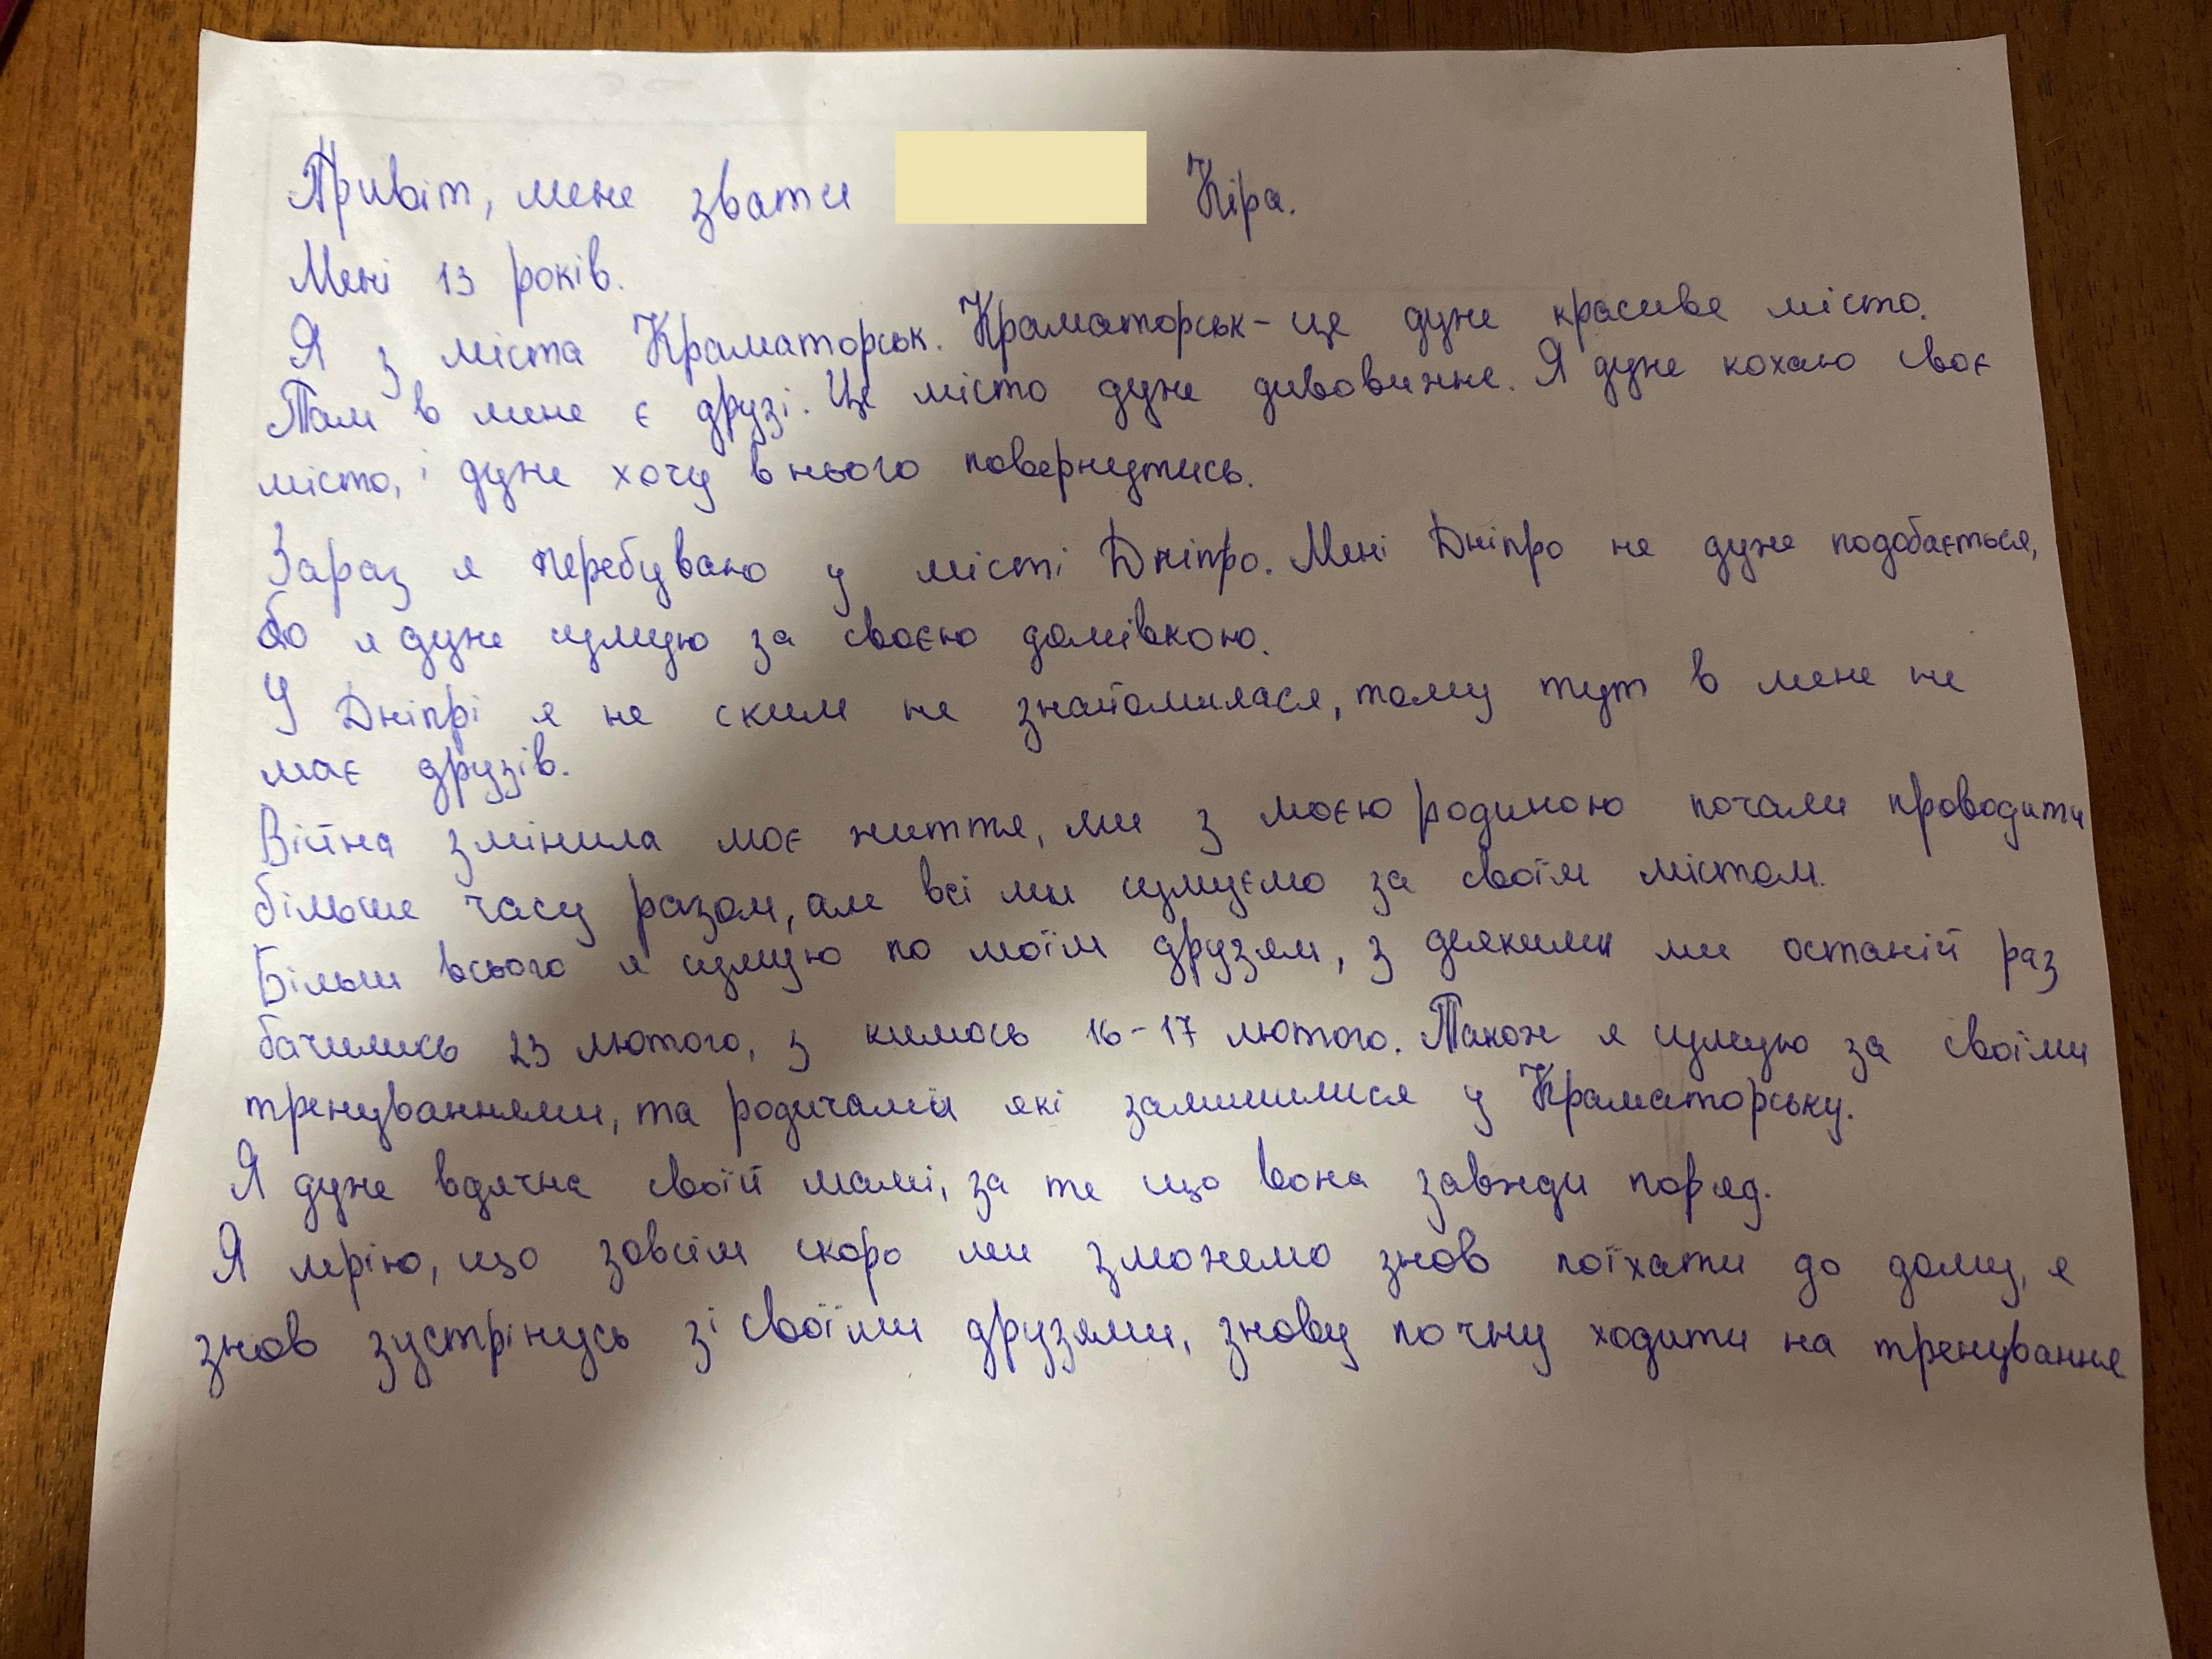 Привіт, мене звати Кіра.
Мені 13 років.
Я з міста Краматорськ. Краматорськ - це дуже красиве місто.
Там в мене є друзі. Це місто дуже дивовижне. Я дуже кохаю своє
місто, і дуже хочу в нього повернутись.
Зараз я перебуваю у місті Дніпро. Мені Дніпро не дуже подобається,
бо я дуже сумую за своєю домівкою.
У Дніпрі я не ским не знайомилася, тому тут в мене не
має друзів.
Війна змінила моє життя, ми з моєю родиною почали проводити
більше часу разом, але всі ми сумуємо за своїм містом.
Більш всього я сумую по моїм друзям, з деякими ми останій раз
бачились 23 лютого, з кимось 16-17 лютого. Також я сумую за своїми
тренуваннями, та родичами які залишилися у Краматорську.
Я дуже вдячна своїй мамі, за те що вона завжди поряд.
Я мрію, що зовсім скоро ми зможемо знов поїхати до дому, я
знов зустрінусь зі своїми друзями, знову почну ходити на тренування